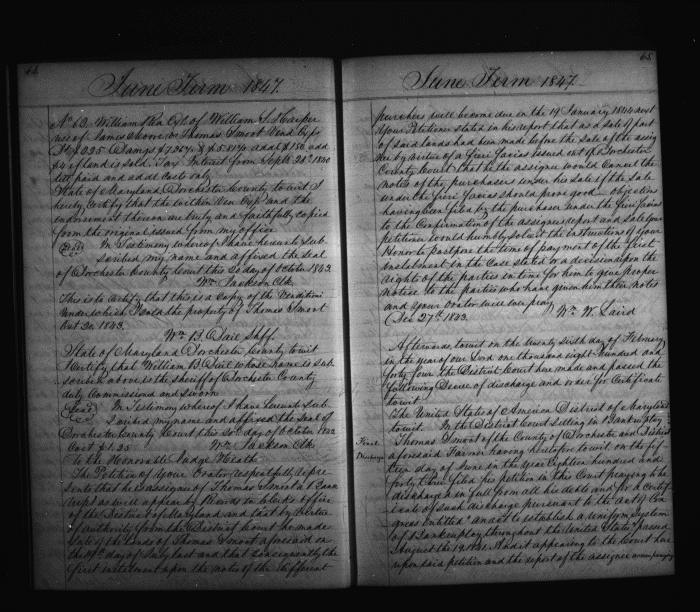 64
June Term 1847.
No 62. William Ex of William S. Harper
use of James Moore vs Thomas Smoot Vend Expo
add $150 add
$4 if land is sold. Int Interest from Sept 20th 1840
till paid and addl Cost only
State of Maryland Dorchester County to wit I
hereby Certify that the within Ven Exp and the
endorsement thereon are truly and faithfully copied
from the original issued from my office
In Testimony whereof I have hereunto Sub-
scribed my name and affixed the Seal
of Dorchester County Court this 20 day of October 1843
Wm Jackson Clk.
This is to Certify that this is a Copy of the Venditioni
under which I sold the property of Thomas Smoot
Oct 20. 1843.
Wm B. Dail Shff.
State of Maryland Dorchester County to wit
I Certify that William B. Dail whose name is sub-
scribed above is the sheriff of Dorchester County
duly Commissioned and sworn
Seal In Testimony whereof I have hereunto Sub-
scribed my name and affixed the Seal of
Dorchester County Court this 20th day of October 1843
Cost $1.25 Wm Jackson Clk
To the Honorable Judge Heath
The Petition of your Orator respectfully repre-
sents that he is assignee of Thomas Smoot a Bank
rupt as will appear of Record in Clerks office
of the District of Maryland and that by virtue
of authority from the District Court he made
sale of the lands of Thomas Smoot aforesaid on
the 19th day of July last and that consequently the
first instalment upon the notes of the different
65
June Term 1847
purchers will become due in the 19 January 1844 next
Your Petitioner stated in his report that as a sale of part
of said lands had been made before the sale of the assig
nee by virtue of a fieri facias issued out of Dorchester
County Court that he the assignee would Cancel the
notes of the purchasers under his sale if the sale
under the fieri facias should prove good objections
having been filed by the purchaser under the fieri facias
to the Confirmation of the assignees report and sale your
petitioner would humbly solicit the instruction of your
Honor to postpone the time of payment of the first
instalment in the Case stated or a decision upon the
rights of the parties in time for him to give proper
notice to the parties who have given him their notes
and your orator will ever pray
Dec 27th 1843. Wm W. Laird
Afterwards to wit on the twenty sixth day of February
in the year of our Lord one thousand eight hundred and
forty four the District Court here made and passed the
following Decree of discharge and order for Certificate
to wit.
The United States of America District of Maryland
to wit. In the District Court sitting in Bankruptcy
Final Discharge
Thomas Smoot of the County of Dorchester and District
aforesaid Farmer having heretofore to wit on the fif
teen day of June in the year Eighteen hundred and
forty three filed his petition in this Court praying to be
discharged in full from all his debts and for a Certif-
icate of such discharge pursuant to the act of Con-
gress entitled "an act to establish a uniform System
of Bankruptcy throughout the United States" passed
August the 19, 1841. And it appearing to the Court here
upon said petition and the report of the assignee accompanying